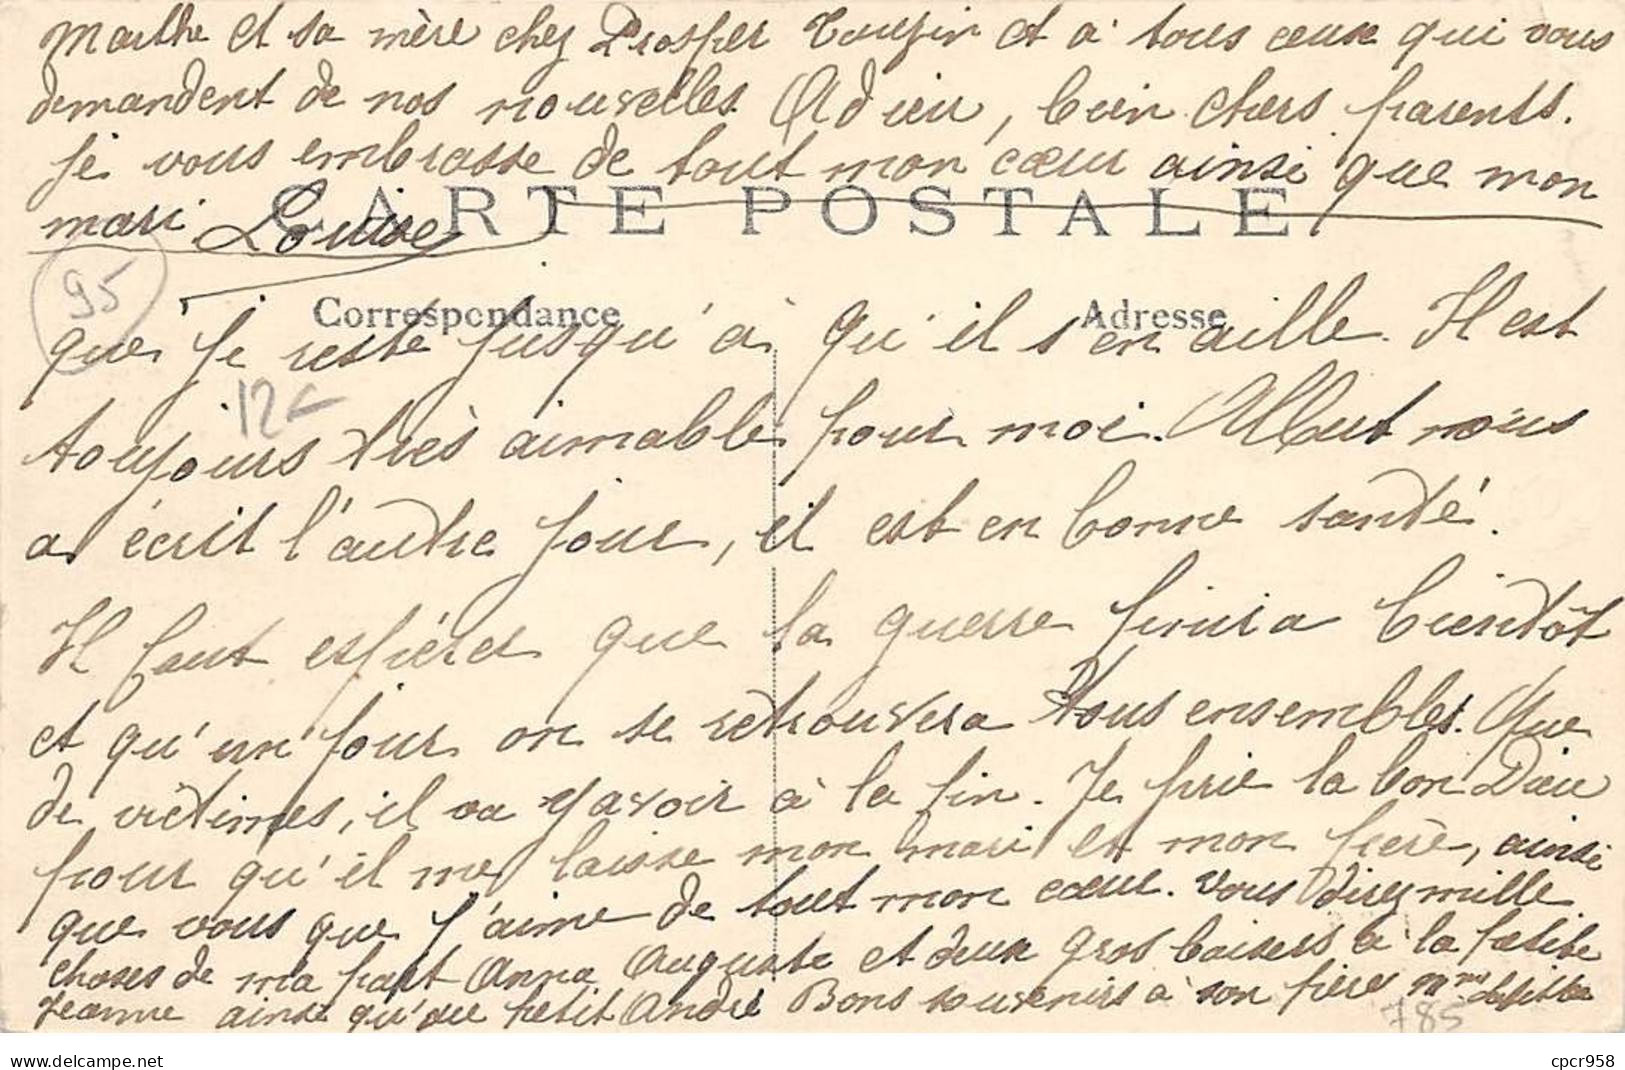 Marthe et sa mère chez Prosper Touzin et à tous ceux qui vous
demandent de nos nouvelles. Adieu, bien chers parents.
Je vous embrasse de tout mon cœur ainsi que mon
mari Louise
CARTE POSTALE
95
Correspondance
Adresse
que je reste jusqu'à qu'il s'en aille. Il est
12€
toujours très aimable pour moi. Albert nous
a écrit l'autre jour, il est en bonne santé.
Il faut espérer que la guerre finira bientôt
et qu'un jour on se retrouvera tous ensembles. Que
de victimes, il va y avoir à la fin. Je prie la bon Dieu
pour qu'il me laisse mon mari et mon frère, ainsi
que vous que j'aime de tout mon cœur. Vous direz mille
choses de ma part Anna Auguste et deux gros baisers à la petite
Jeanne ainsi qu'au petit André Bons souvenirs à son père Mme
785
cpcr958